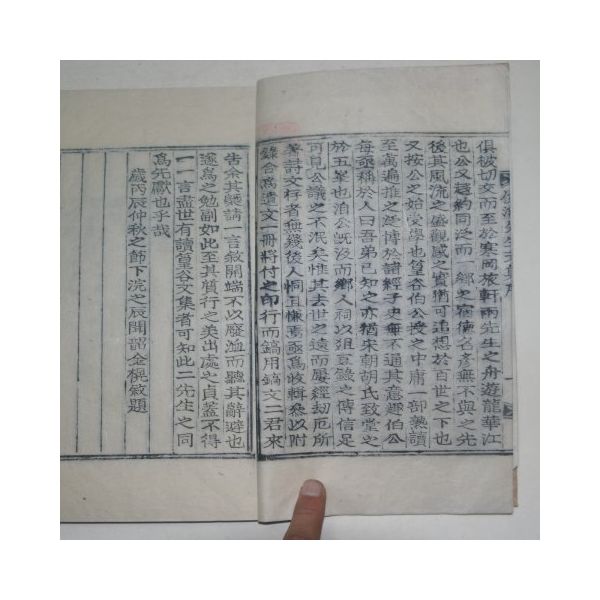 俱被切交而至於寒岡旅軒兩先生之舟遊龍華江
也公又趍約同泛而一鄉之宿德名彥無不與之先
後其風流之盛觀感之實猶可追想於百世之下也
又按公之始受學也篁谷伯公授之中庸一部熟讀
至萬遍推之遂博於諸經子史無不通其意趣伯公
每亟稱於人曰吾弟已知之亦猶宋朝胡氏致堂之
於五峯也洎公旣沒而鄉人祠以俎豆錄之傳信足
可見公議之不泯矣惟其去世之遠而屢經刼厄所
著詩文存者無幾後人恫且慊焉亟爲收輯叅以附
錄合爲遺文一冊將付之印行而鎬用鎬文二君來
告余其慫請一言敘開端不以廢澁而聽其辭避也
遂爲之勉副如此至其質行之美出處之貞蓋不得
一一言盡世有讀篁谷文集者可知此二先生之同
爲先獻也乎哉
歲丙辰仲秋之節下浣之辰聞韶金榥敘題